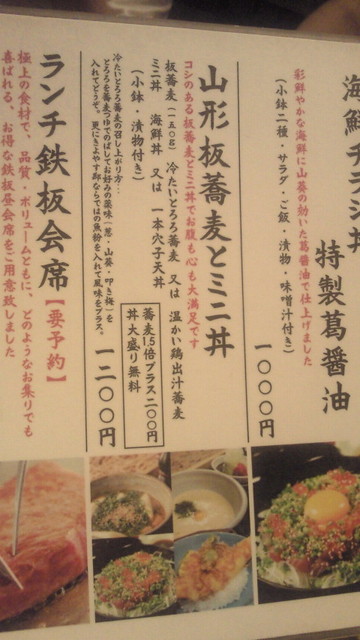 海鮮チラシ丼
特製葛醤油
彩鮮やかな海鮮に山葵の効いた葛醤油で仕上げました
(小鉢二種・サラダ・ご飯・漬物・味噌汁付き)
一〇〇〇円
山形板蕎麦とミニ丼
コシのある板蕎麦とミニ丼でお腹も心も大満足です
板蕎麦(一五〇g) 冷たいとろろ蕎麦 又は 温かい鶏出汁蕎麦
ミニ丼 海鮮丼 又は 一本穴子天丼
(小鉢・漬物付き)
冷たいとろろ蕎麦の召し上がり方…
とろろを蕎麦つゆでのばしてお好みの薬味(葱・山葵・叩き梅)を
入れてどうぞ。更にきよやす邸ならではの魚粉を入れて風味をプラス。
蕎麦1.5倍プラス二〇〇円
丼大盛り無料
一二〇〇円
ランチ鉄板会席【要予約】
極上の食材で、品質・ボリュームともに、どのようなお集りでも
喜ばれる、お得な鉄板昼会席をご用意致しました